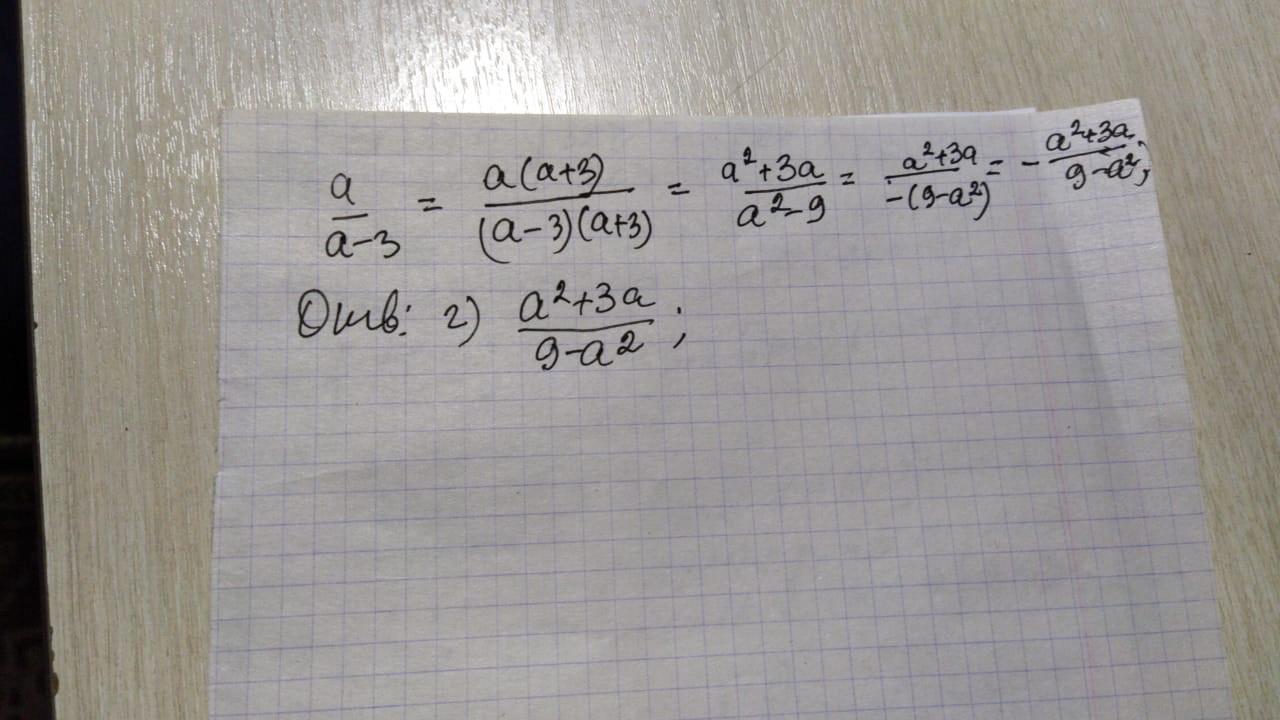 a/(a-3) = a(a+3)/((a-3)(a+3)) = (a²+3a)/(a²-9) = (a²+3a)/(-(9-a²)) = -(a²+3a)/(9-a²);
Отв: г) (a²+3a)/(9-a²);